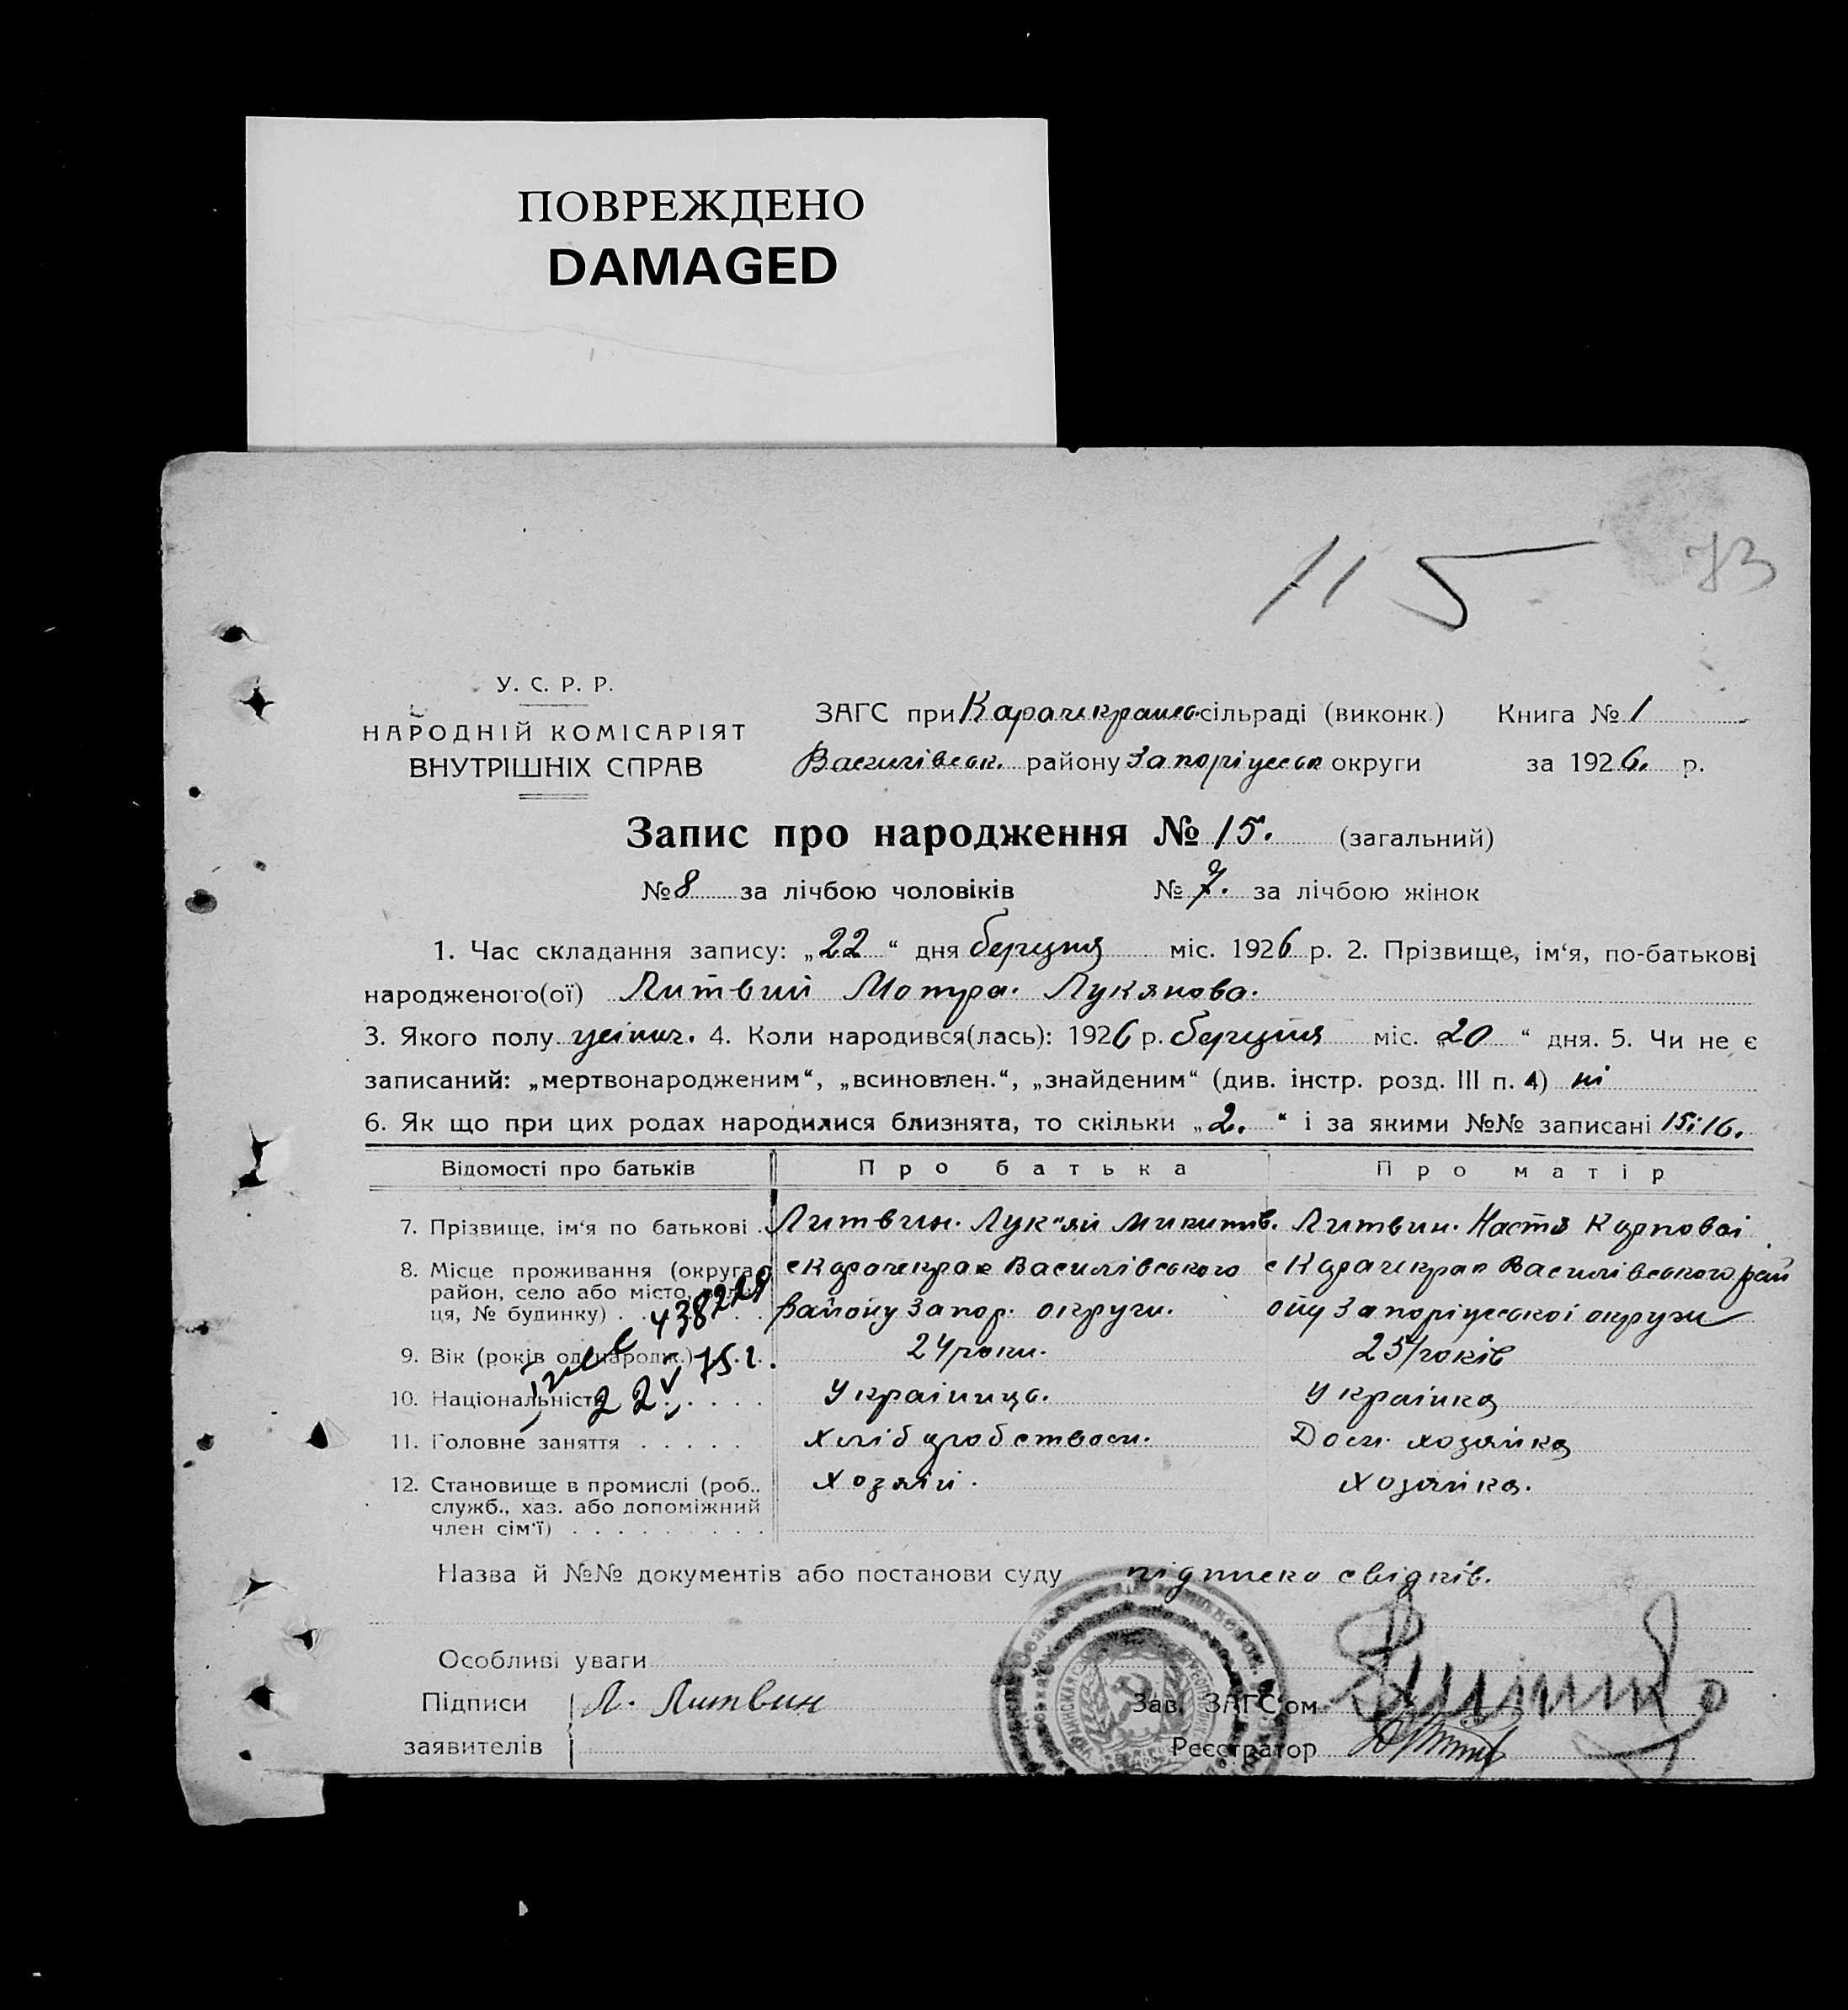 ПОВРЕЖДЕНО
DAMAGED
115
73
У. С. Р. Р.
НАРОДНІЙ КОМІСАРІЯТ
ВНУТРІШНІХ СПРАВ
ЗАГС при Карачекрансо сільраді (виконк.) Книга № 1
Василівськ. району Запоріжськ округи за 1926. р.
Запис про народження № 15. (загальний)
№ 8 за лічбою чоловіків № 7. за лічбою жінок
1. Час складання запису: „22“ дня берцня міс. 1926 р. 2. Прізвище, ім‘я, по-батькові
народженого(ої) Литвин Мотра. Лукянова.
3. Якого полу жіноч. 4. Коли народився(лась): 1926 р. берцня міс. „20“ дня. 5. Чи не є
записаний: „мертвонародженим“, „всиновлен.“, „знайденим“ (див. інстр. розд. III п. 4) ні
6. Як що при цих родах народилися близнята, то скільки „2.“ і за якими №№ записані 15: 16.
Відомості про батьків Про батька Про матір
7. Прізвище, ім‘я по батькові Литвин. Лук"ян Микитів. Литвин. Настя Карповаі
8. Місце проживання (округа, с Карачекрак Василівського с Карачекрак Василівського рай
район, село або місто, вулиця, № будинку) району Запор. округи. ону Запоріжськоі округи
438229
9. Вік (років од народж.) 24 роки. 25 років
75 г.
10. Національність Украінць. Украінка
22
11. Головне заняття хліборобством. Дом. хозяйка
12. Становище в промислі (роб., хозяін. хозяйка.
служб., хаз. або допоміжний
член сім‘ї)
Назва й №№ документів або постанови суду підписка свідків.
Особливі уваги
Підписи Л. Литвин Зав. ЗАГС‘ом
заявителів Реєстратор